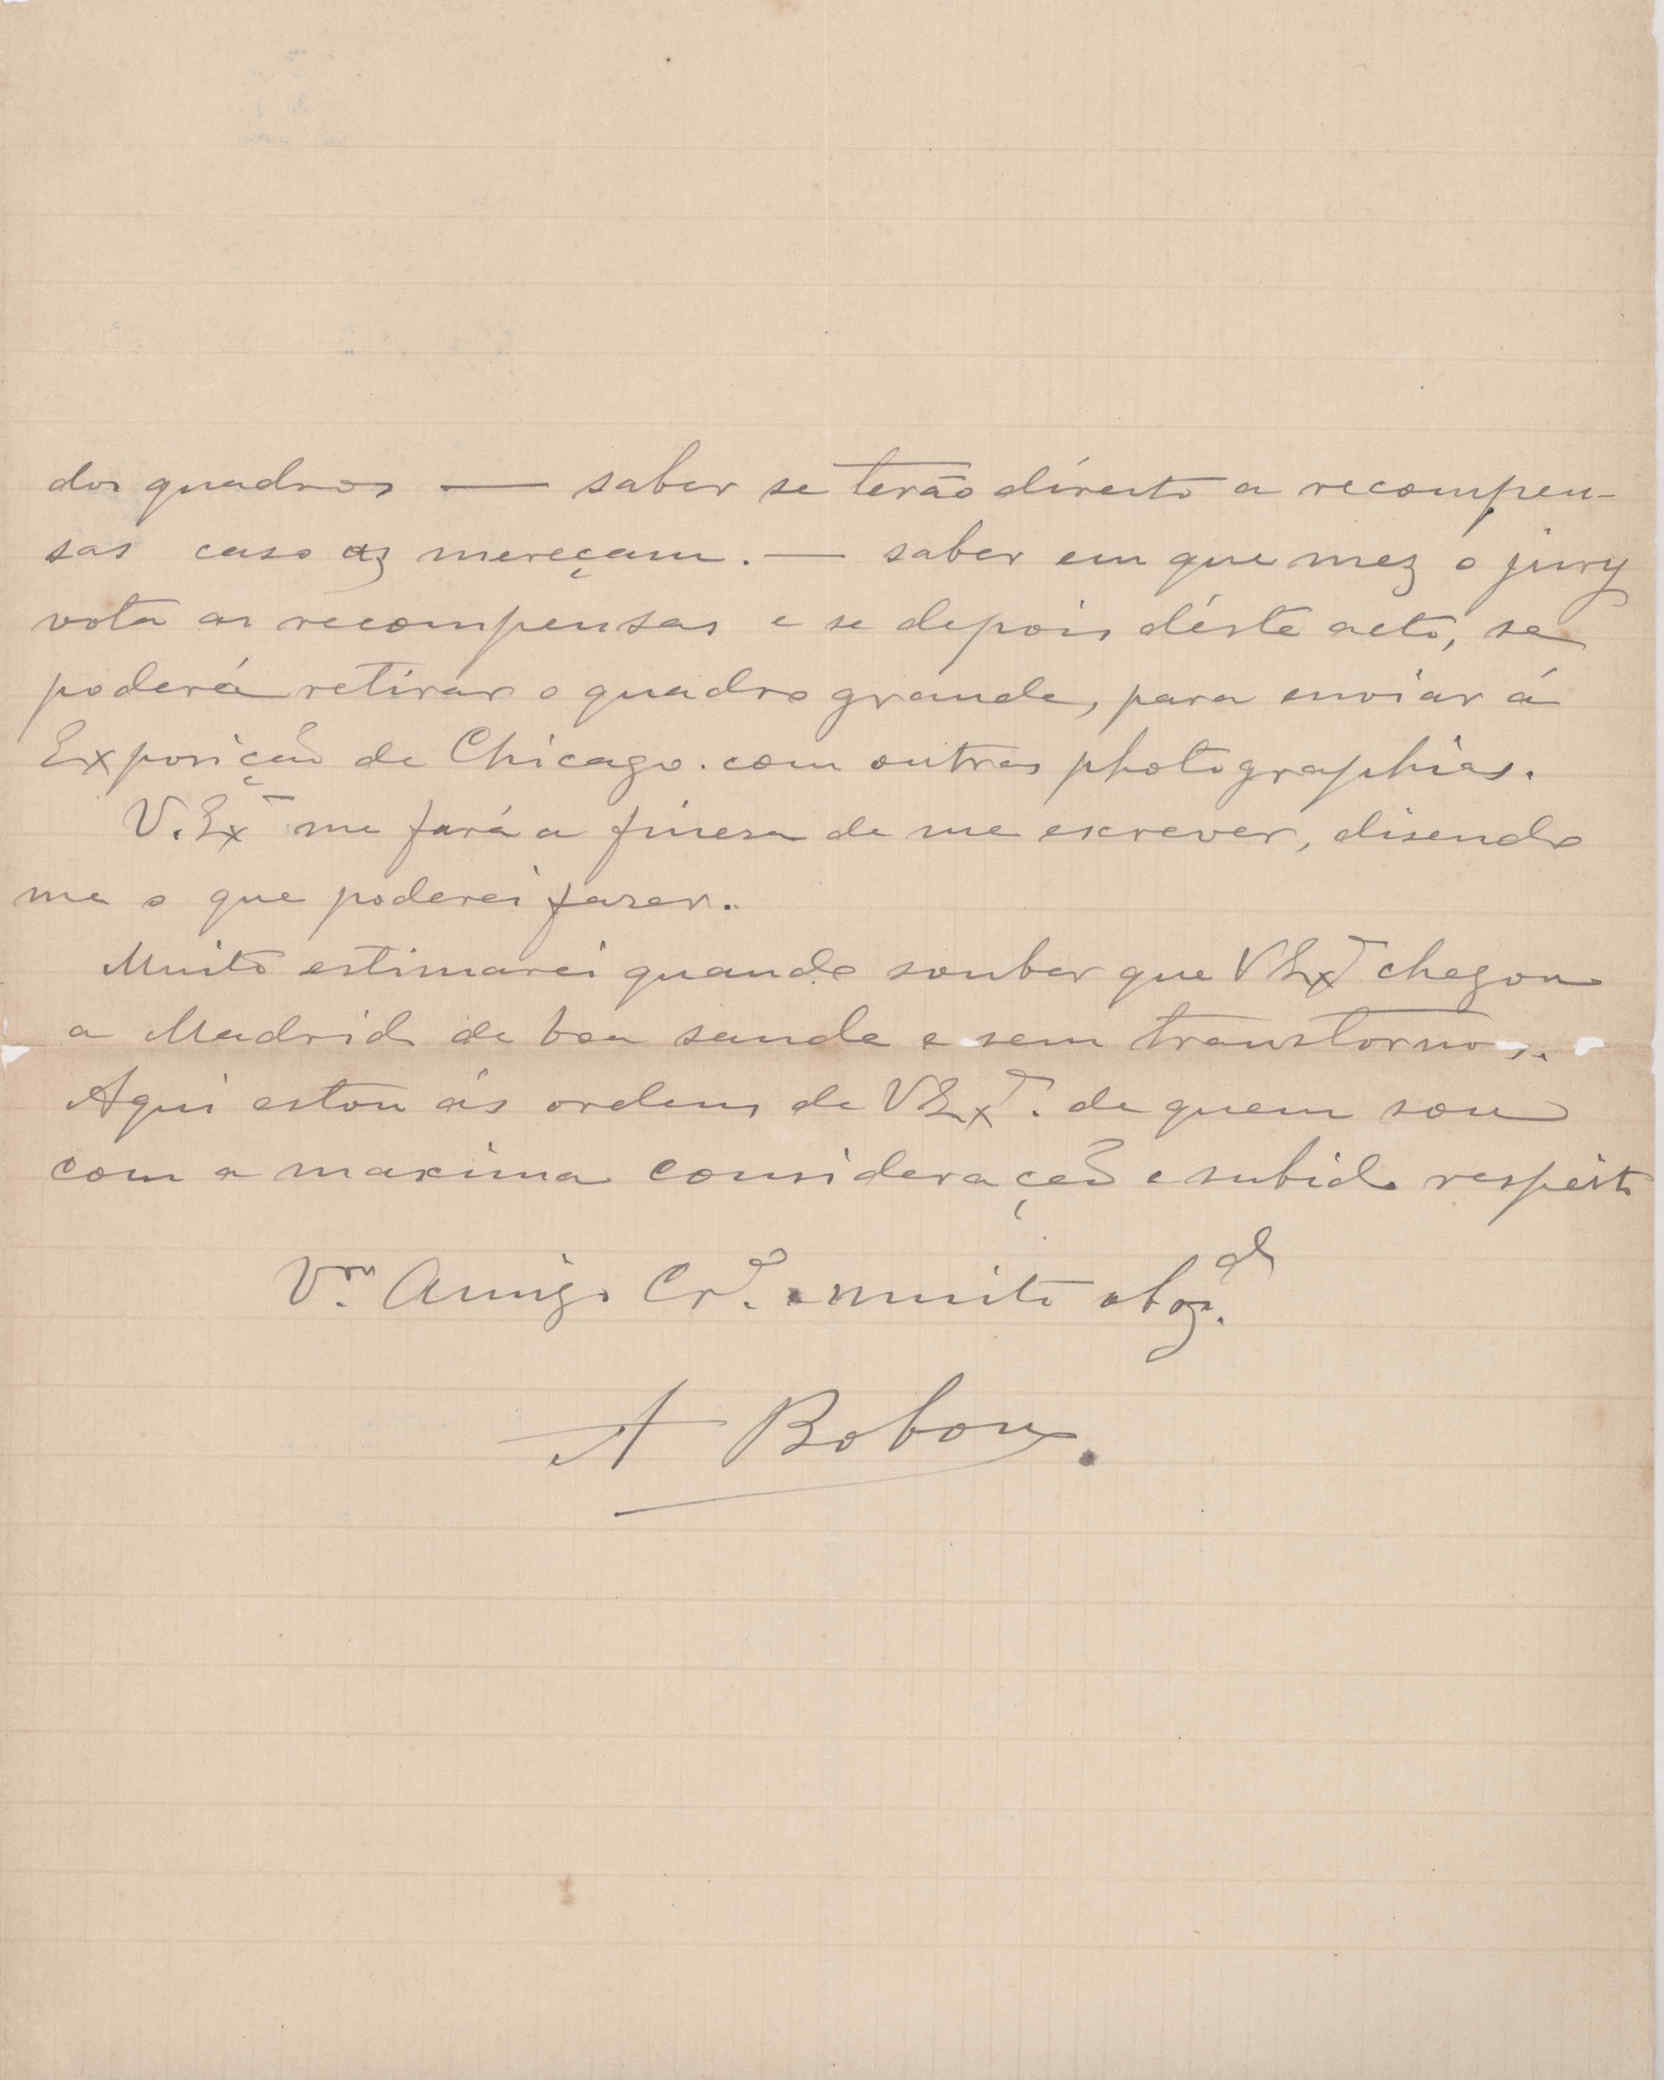 dos quadros — saber se terão direito a recompen-
sas caso as mereçam. — saber em que mez o jury
vota as recompensas e se depois d'éste acto, se
poderá retirar o quadro grande, para enviar á
Exposição de Chicago. com outras photographias.
V. Exª me fará a finesa de me escrever, disendo
me o que poderei faser.
Muito estimarei quando souber que V Exª chegou
a Madrid de boa saude e sem transtornos.
Aqui estou ás ordens de V Exª. de quem sou
com a maxima consideração e subido respeito
Vro. Amigo Crº. e muito obgdº.
A Bobone.